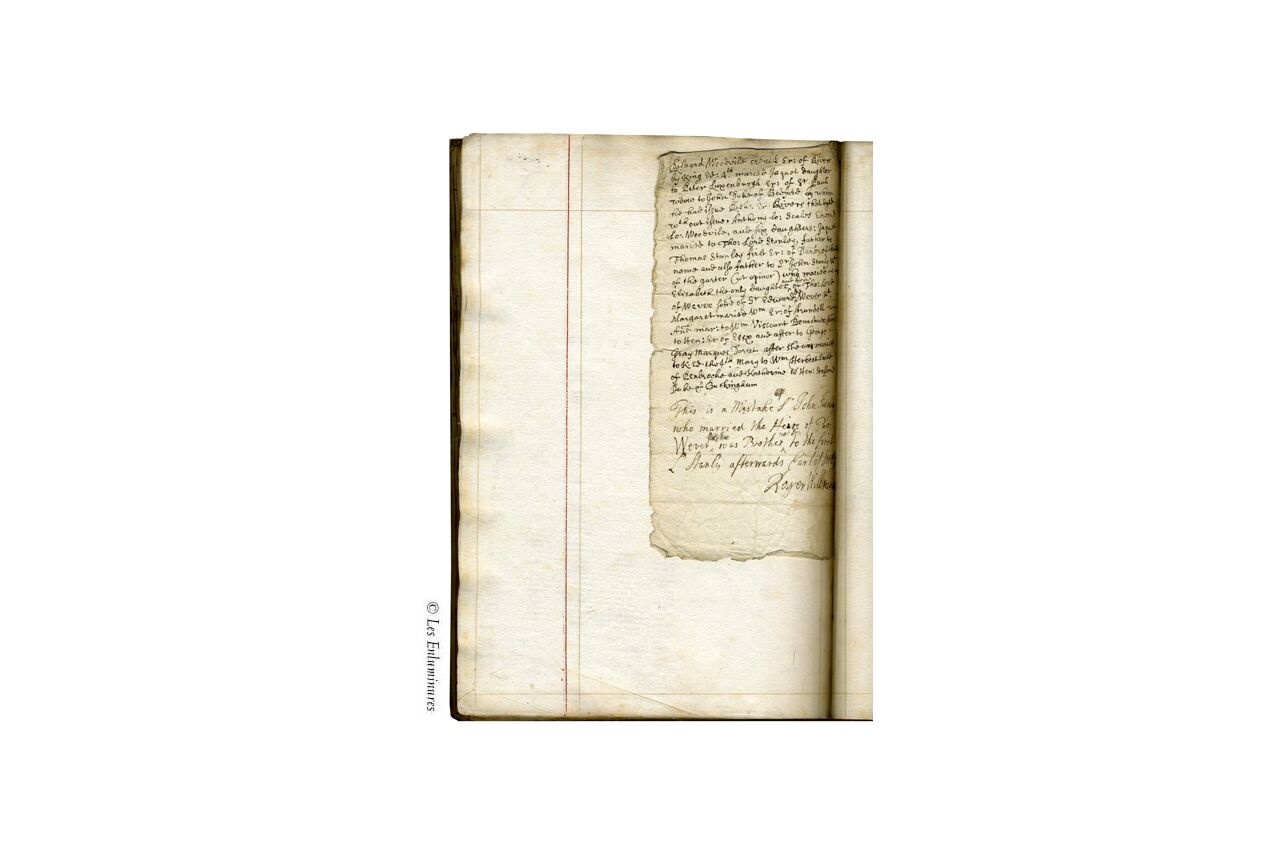 Richard Woodvile created Er: of River
by King Ed: 4th married Jaquet daughter
to Peter Luxenburgh Er: of St Paul
widow to John Duke of Bedford by whom
he had issue Rich: Er Rivers that dyed
wth out issue, Anthony Lo: Scales
Lo: Woodvile, and six daughters: Jaquet
maried to Tho: Lord Stanley, father to
Thomas Stanley first Er: of Darby of that
name and also father to Sr John Stanly kt
of the garter (ut opinor) who maried
Elizabeth the only daughter of Tho: Lord
of Wever sone of Sr Edward Wever kt.
Margaret maried Wm Er: of Arundell
Ane mar: to Wm Viscont Bourchier
to Hen: Er of Essex and after to
Gray Marques Dorcet after she was maried
to K: Ed: the 4th Mary to Wm Herbert Earle
of Penbrooke and Katherine to Hen: Stafford
Duke of Buckingham
This is a Mistake Sr John
who married the Heire of
Wever, was Brother to the first
L Stanly afterwards Earl of
Roger Wilbra
© Les Enluminures